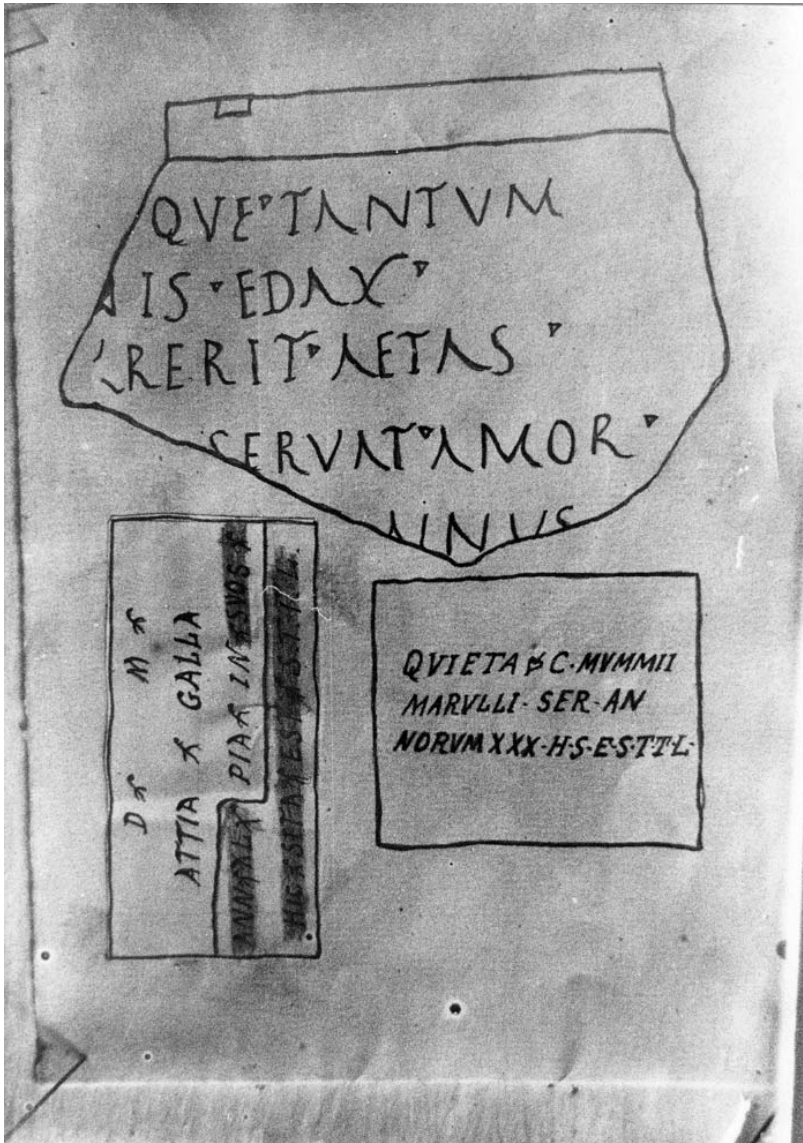 QVE TANTVM
IS EDAX
RERIT AETAS
SERVAT AMOR
VNVS
D M
ATTIA GALLA
ANN LX PIA IN SVOS
HIC SITA EST S T T L
QVIETA C·MVMMII
MARVLLI·SER·AN
NORVM XXX·H·S·E·S·T·T·L·